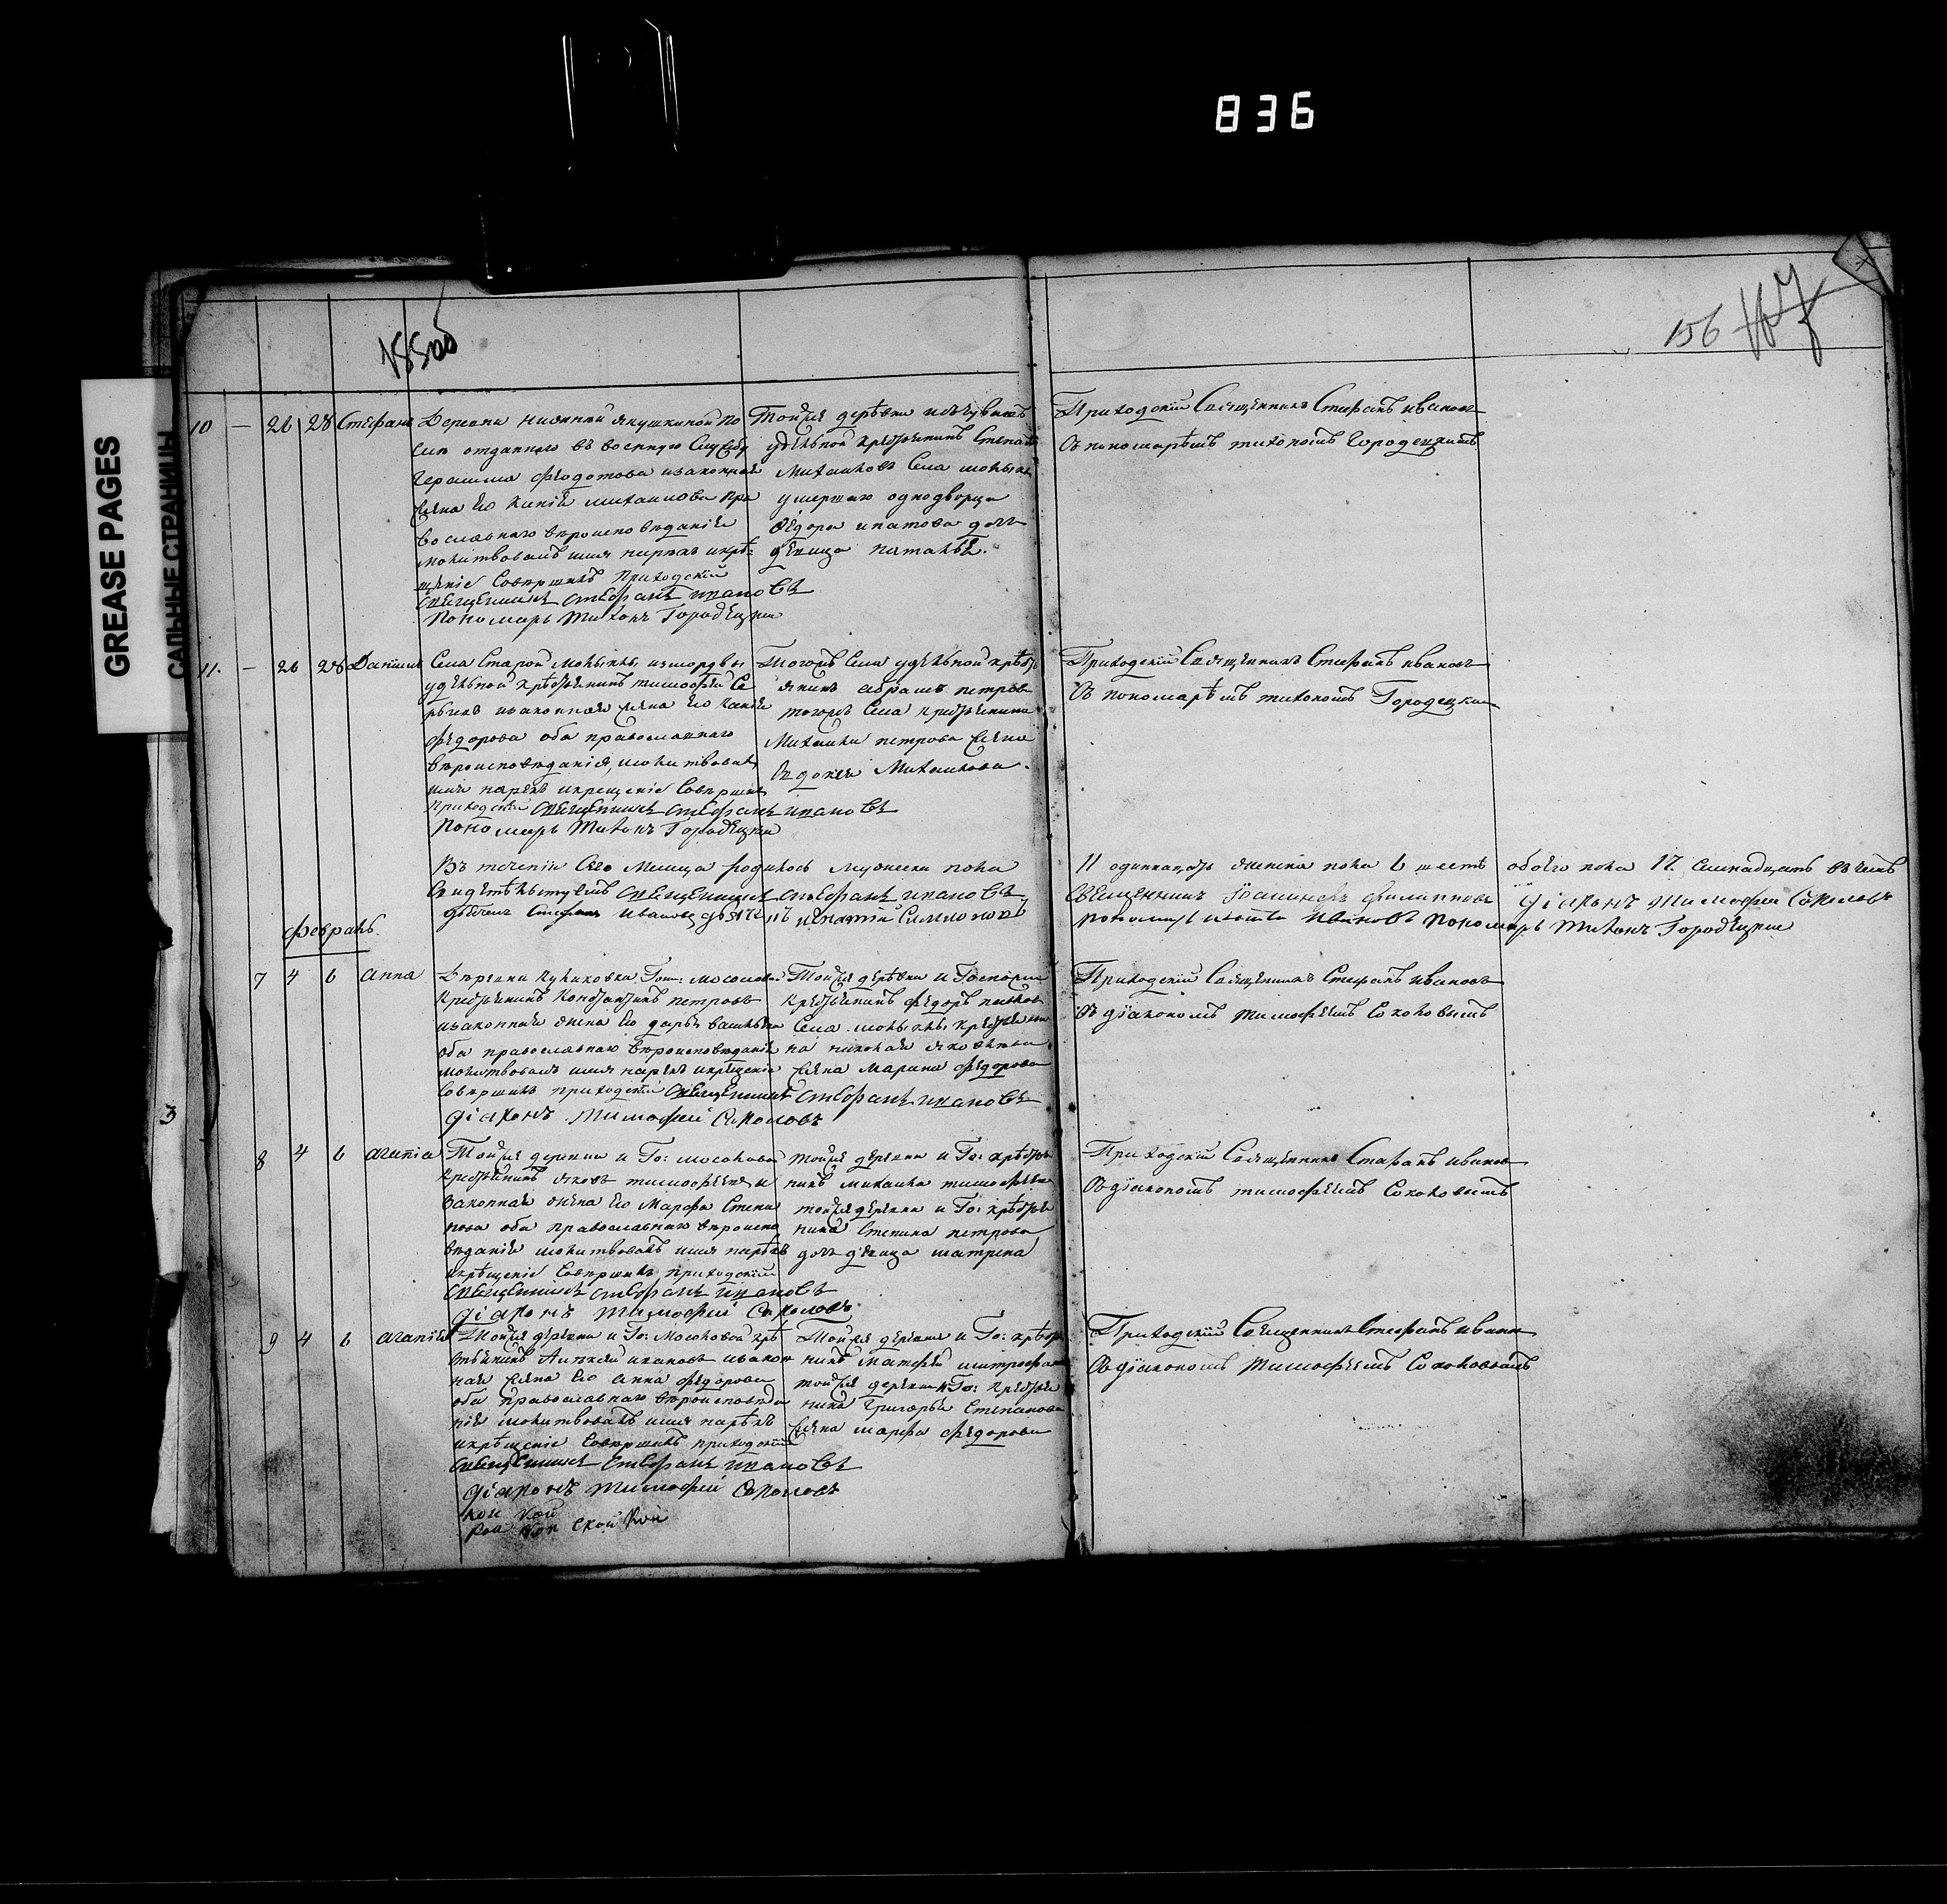 836
GREASE PAGES
САЛЬНЫЕ СТРАНИЦЫ
156
10 — 26 28 Стефанъ
Деревни нижнной якушкиной по
сил отданнаго въ военную службу
герасима федотова изаконная
жена его
михаилова пра
вославнаго вѣроисповѣданія
молитвовалъ имя нарекъ икрѣ-
щеніе Совершилъ Приходскій
Священникъ стефанъ ивановъ
Пономарь Тихонъ Городецкій
Тойже деревни изъ чувашъ
удѣльной крестьянинъ Степанъ
Михайловъ Села мокыклы
умершаго однодворца
Ѳедора ипатова дочь
девица наталья.
Приходскій Священникъ Стефанъ ивановъ
Съ пономарѣмъ тихономъ Городецкимъ
11. — 26 28 Даніилъ
Села Старой
измордвы
удѣльной крѣстьянинъ тимофей Се
изаконная жена его
федорова оба православнаго
вѣроисповѣданія, молитвовалъ
имя нарекъ икрещеніе Совершилъ
приходскій Священникъ стефанъ ивановъ
Пономарь Тихонъ Городецкій
Тогожъ Села удѣльной крѣсть
янинъ абрамъ петровъ
тогожъ Села крестьянина
Михаила петрова жена
Михаилова.
Приходскій Священникъ Стефанъ ивановъ
Съ пономарѣмъ тихономъ Городецким
Въ теченіи Сего Месяца родилось мужеска пола 11 одиннадцать женска пола 6 шесть обоего пола 17. Семнадцать въ чемъ
Свидѣтельствуемъ Священникъ стефанъ ивановъ Священникъ Іоанникъ филипповъ Діаконъ Тимофей Соколовъ
Стефанъ Ивановъ
игнатій
Ивановъ Пономарь Тихонъ Городецкій
февраль.
7 4 6 анна
Деревни куликовки Гос: мосоловой
Крестьянинъ Константинъ петровъ
изаконная жена его дарья васильева
оба православнаго вѣроисповѣданія
молитвовалъ имя нарекъ икрещеніе
Совершилъ приходскій Священникъ стефанъ ивановъ
Діаконъ Тимофей Соколовъ
Тойже деревни и Господина
крестьянинъ федоръ павлов
Села
крестьяни
на николая яковлева
жена марина федорова
Приходскій Священникъ Стефанъ ивановъ
Съ діакономъ тимофеемъ Соколовымъ
8 4 6 агапіа
Тойже деревни и Го: мосоловой
Крестьянинъ яковъ тимофеевъ и
законная жена его Марфа Степа
нова оба православнаго вѣроиспо
вѣданія молитвовалъ имя нарѣкъ
икрѣщеніе Совершилъ приходскій
Священникъ стефанъ ивановъ
Діаконъ Тимофей Соколовъ
тойже деревни и Го: крѣстья
нинъ михаила тимофеевъ
тойже деревни и Го: крѣстья
нина Степана петрова
дочь дѣвица матрена
Приходскій Священникъ Стефанъ иванов
Съ діакономъ тимофеемъ Соколовымъ
9 4 6 агапіа
Тойже деревни и Го: Мосоловой крѣ
стьянинъ Алексей ивановъ изакон
ная жена его анна федорова
оба православнаго вѣроисповѣда
нія молитвовалъ имя нарѣкъ
икрѣщеніе Совершилъ приходскій
Священникъ стефанъ ивановъ
Діаконъ Тимофей Соколовъ
Тойже деревни и Го: крѣстья
нинъ матфей митрофан
тойже деревни и Го: крестья
нина Григорья Степанова
жена марфа федорова
Приходскій Священникъ Стефанъ иванов
Съ діакономъ тимофеемъ Соколовымъ
3